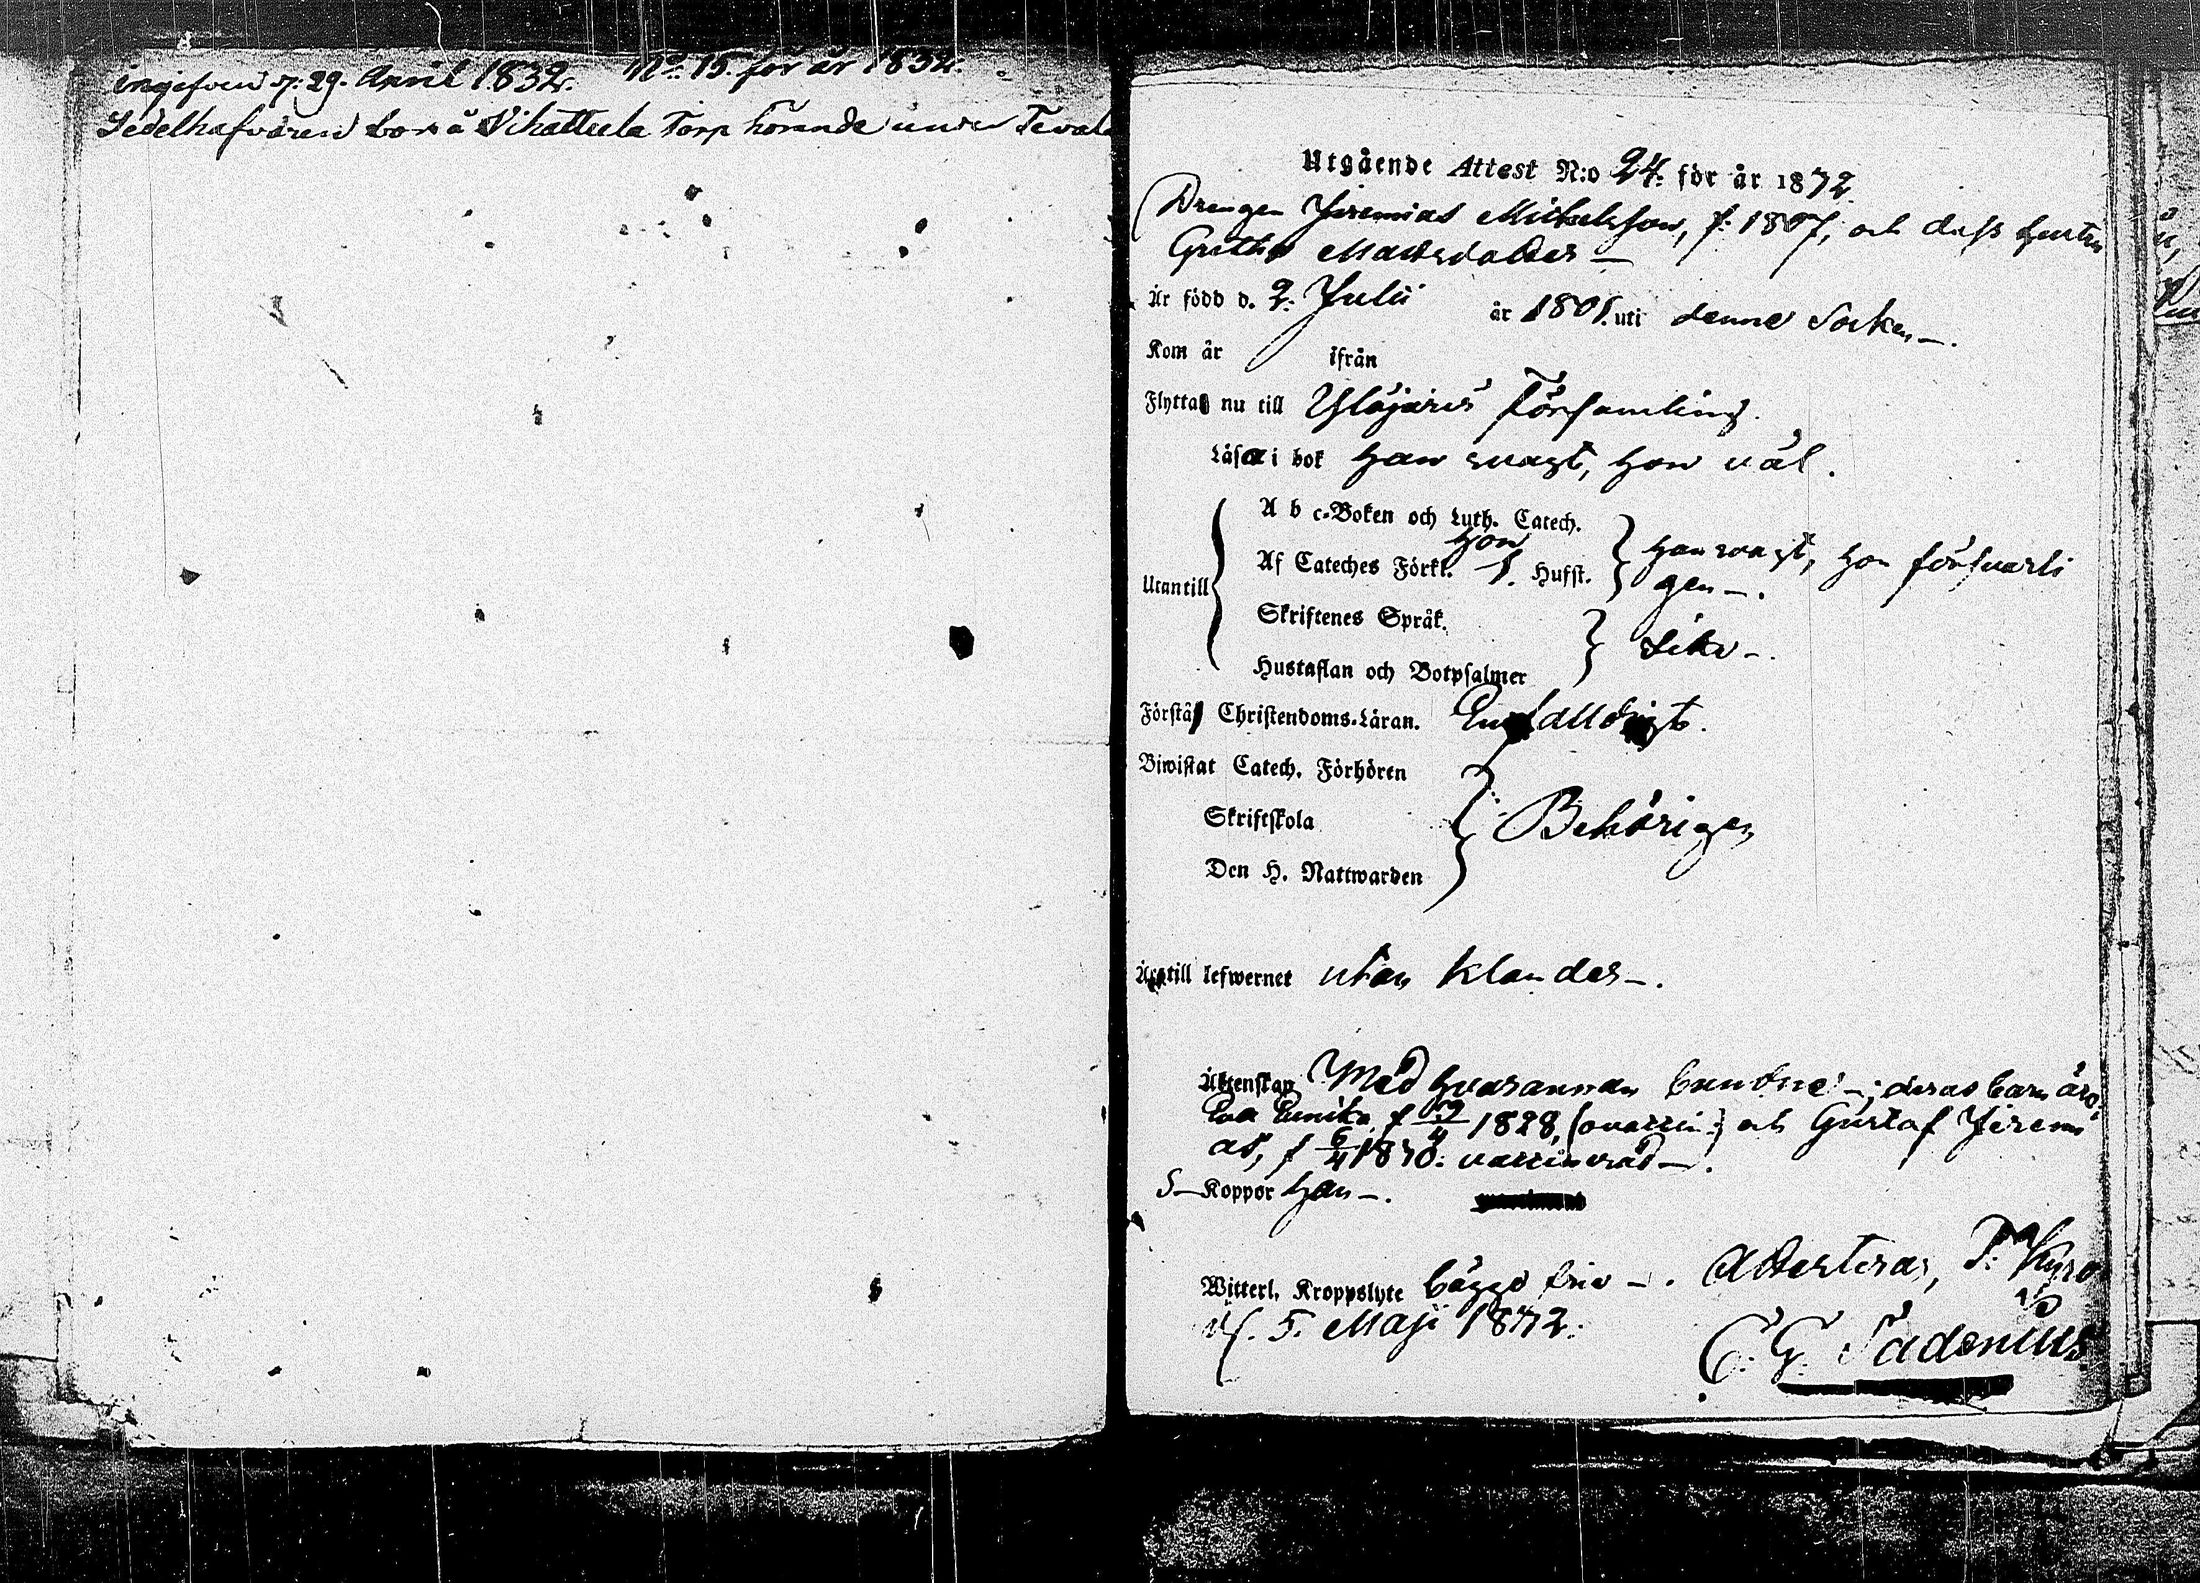 ingifven d. 29. April 1832. No. 15. för år 1832.
Sedelhafvaren bor å Vihattula Torp hörande under
Utgående Attest N:o 24. för år 1832.
Drengen Jeremias Michelsson, f. 1807, och dess hustru
Gretha Mattsdotter —
Är född d. 2. Julii år 1801. uti denne Socken —.
Kom år ifrån
Flytta nu till Ylöjärvi Församling.
Läsa i bok han svagt, hon väl.
A b c-Boken och Luth. Catech.
hon
Af Cateches Förkl. 1. Hufst. han svagt, hon försvarli
Utantill gen —.
Skriftenes Språk.
Lika —.
Hustaflan och Botpsalmer
Förstå Christendoms-Läran. Enfalldigt.
Biwistat Catech. Förhören
Skriftskola Behörigen
Den H. Nattwarden
Äro till lefwernet utan klander —.
Äktenskap Med hvarannan bundne —; deras barn äro,
Eva f 1828, (ovaccin:) och Gustaf Jeremi
as, f 6/4 1830. vaccinerad —.
S — Koppor han —.
Witterl. Kroppslyte bägge frie —. Attesteras, T. Kyro
d. 5. Maji 1832.
C. G. Fadenius